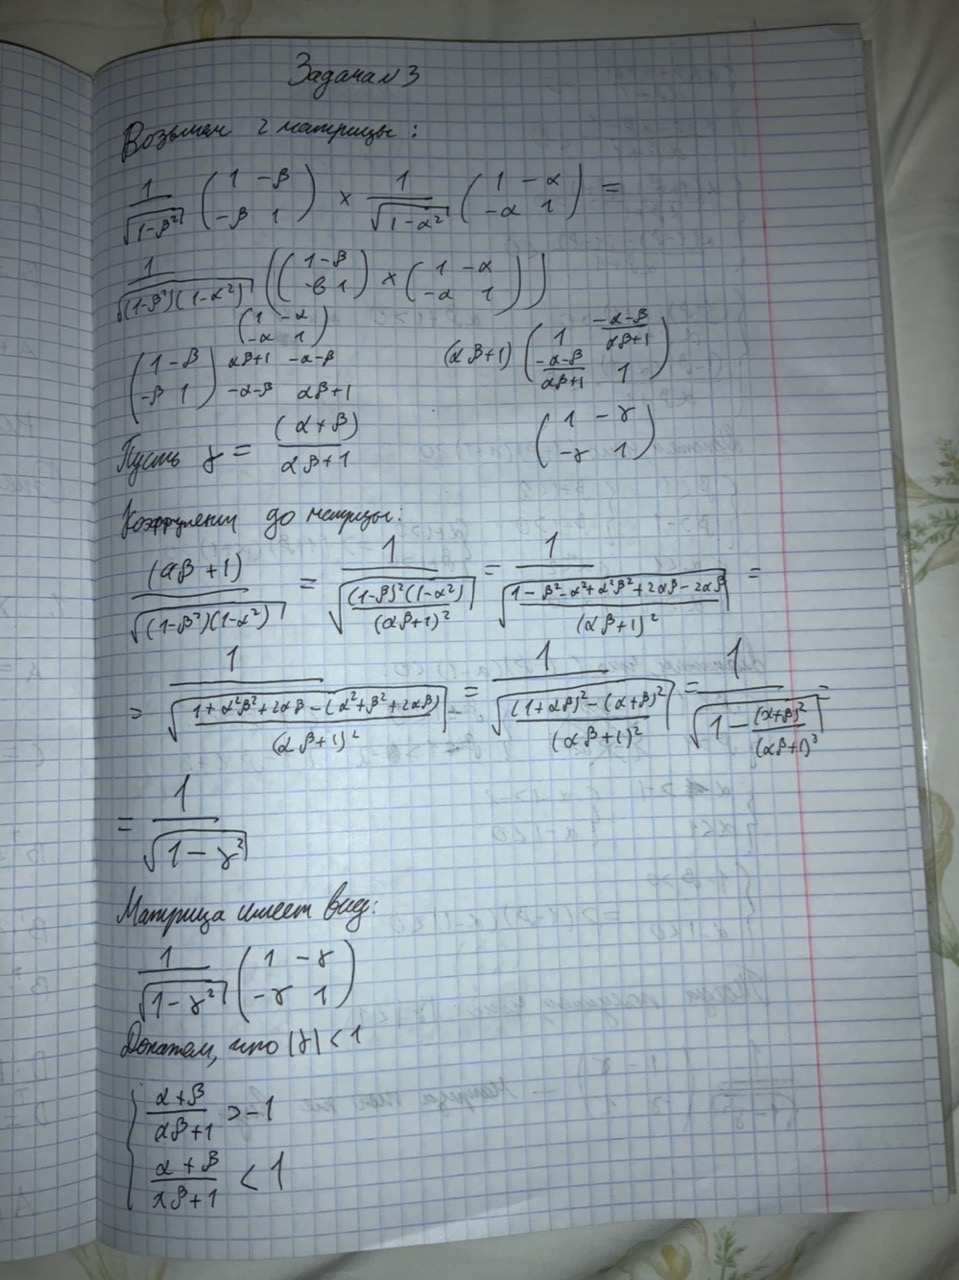 Задача №3
Возьмем 2 матрицы:
1/√(1-β²) (1 -β; -β 1) × 1/√(1-α²) (1 -α; -α 1) =
1/√((1-β²)(1-α²)) ((1 -β; -β 1) × (1 -α; -α 1))
(1 -α; -α 1)
(1 -β; -β 1) αβ+1 -α-β; -α-β αβ+1
(αβ+1) (1 (-α-β)/(αβ+1); (-α-β)/(αβ+1) 1)
Пусть γ = (α+β)/(αβ+1)
(1 -γ; -γ 1)
Коэффициент до матрицы:
(αβ+1)/√((1-β²)(1-α²)) = 1/√((1-β)²(1-α²)/(αβ+1)²) = 1/√((1-β²-α²+α²β²+2αβ-2αβ)/(αβ+1)²) =
= 1/√((1+α²β²+2αβ-(α²+β²+2αβ))/(αβ+1)²) = 1/√(((1+αβ)²-(α+β)²)/(αβ+1)²) = 1/√(1-(α+β)²/(αβ+1)²) =
= 1/√(1-γ²)
Матрица имеет вид:
1/√(1-γ²) (1 -γ; -γ 1)
Докажем, что |γ| < 1
{ (α+β)/(αβ+1) > -1
(α+β)/(αβ+1) < 1